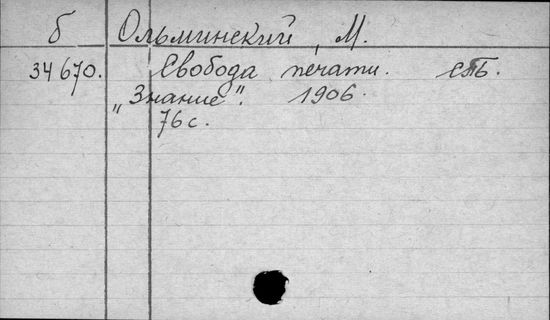 б Ольминский, М.
34670. Свобода печати. СПБ.
„Знание“. 1906.
76 с.